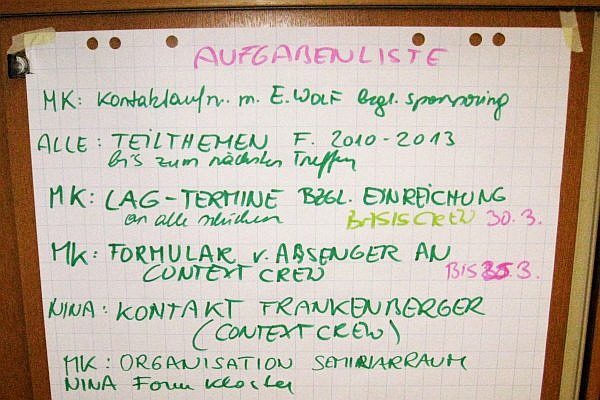 AUFGABENLISTE
MK: Kontaktaufn. m. E. WOLF bzgl. sponsoring
ALLE: TEILTHEMEN F. 2010-2013
bis zum nächsten Treffen
MK: LAG-TERMINE BZGL. EINREICHUNG
an alle schicken BASISCREW 30.3.
MK: FORMULAR V. ABSENGER AN
CONTEXT CREW BIS 3.
NINA: KONTAKT FRANKENBERGER
(CONTEXT CREW)
MK: ORGANISATION SEMINARRAUM
NINA Form Kloster